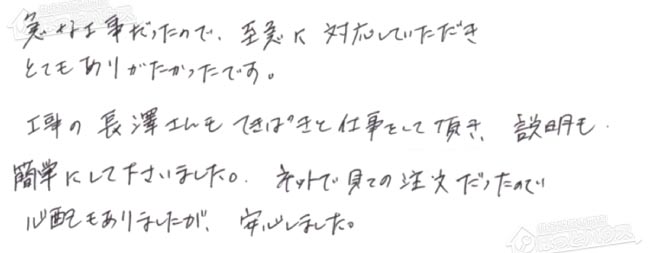 急な工事だったので、至急に対応していただき
とてもありがたかったです。
工事の長澤さんもてきぱきと仕事をして頂き、説明も
簡単にして下さいました。ネットで見ての注文だったので
心配もありましたが、安心しました。